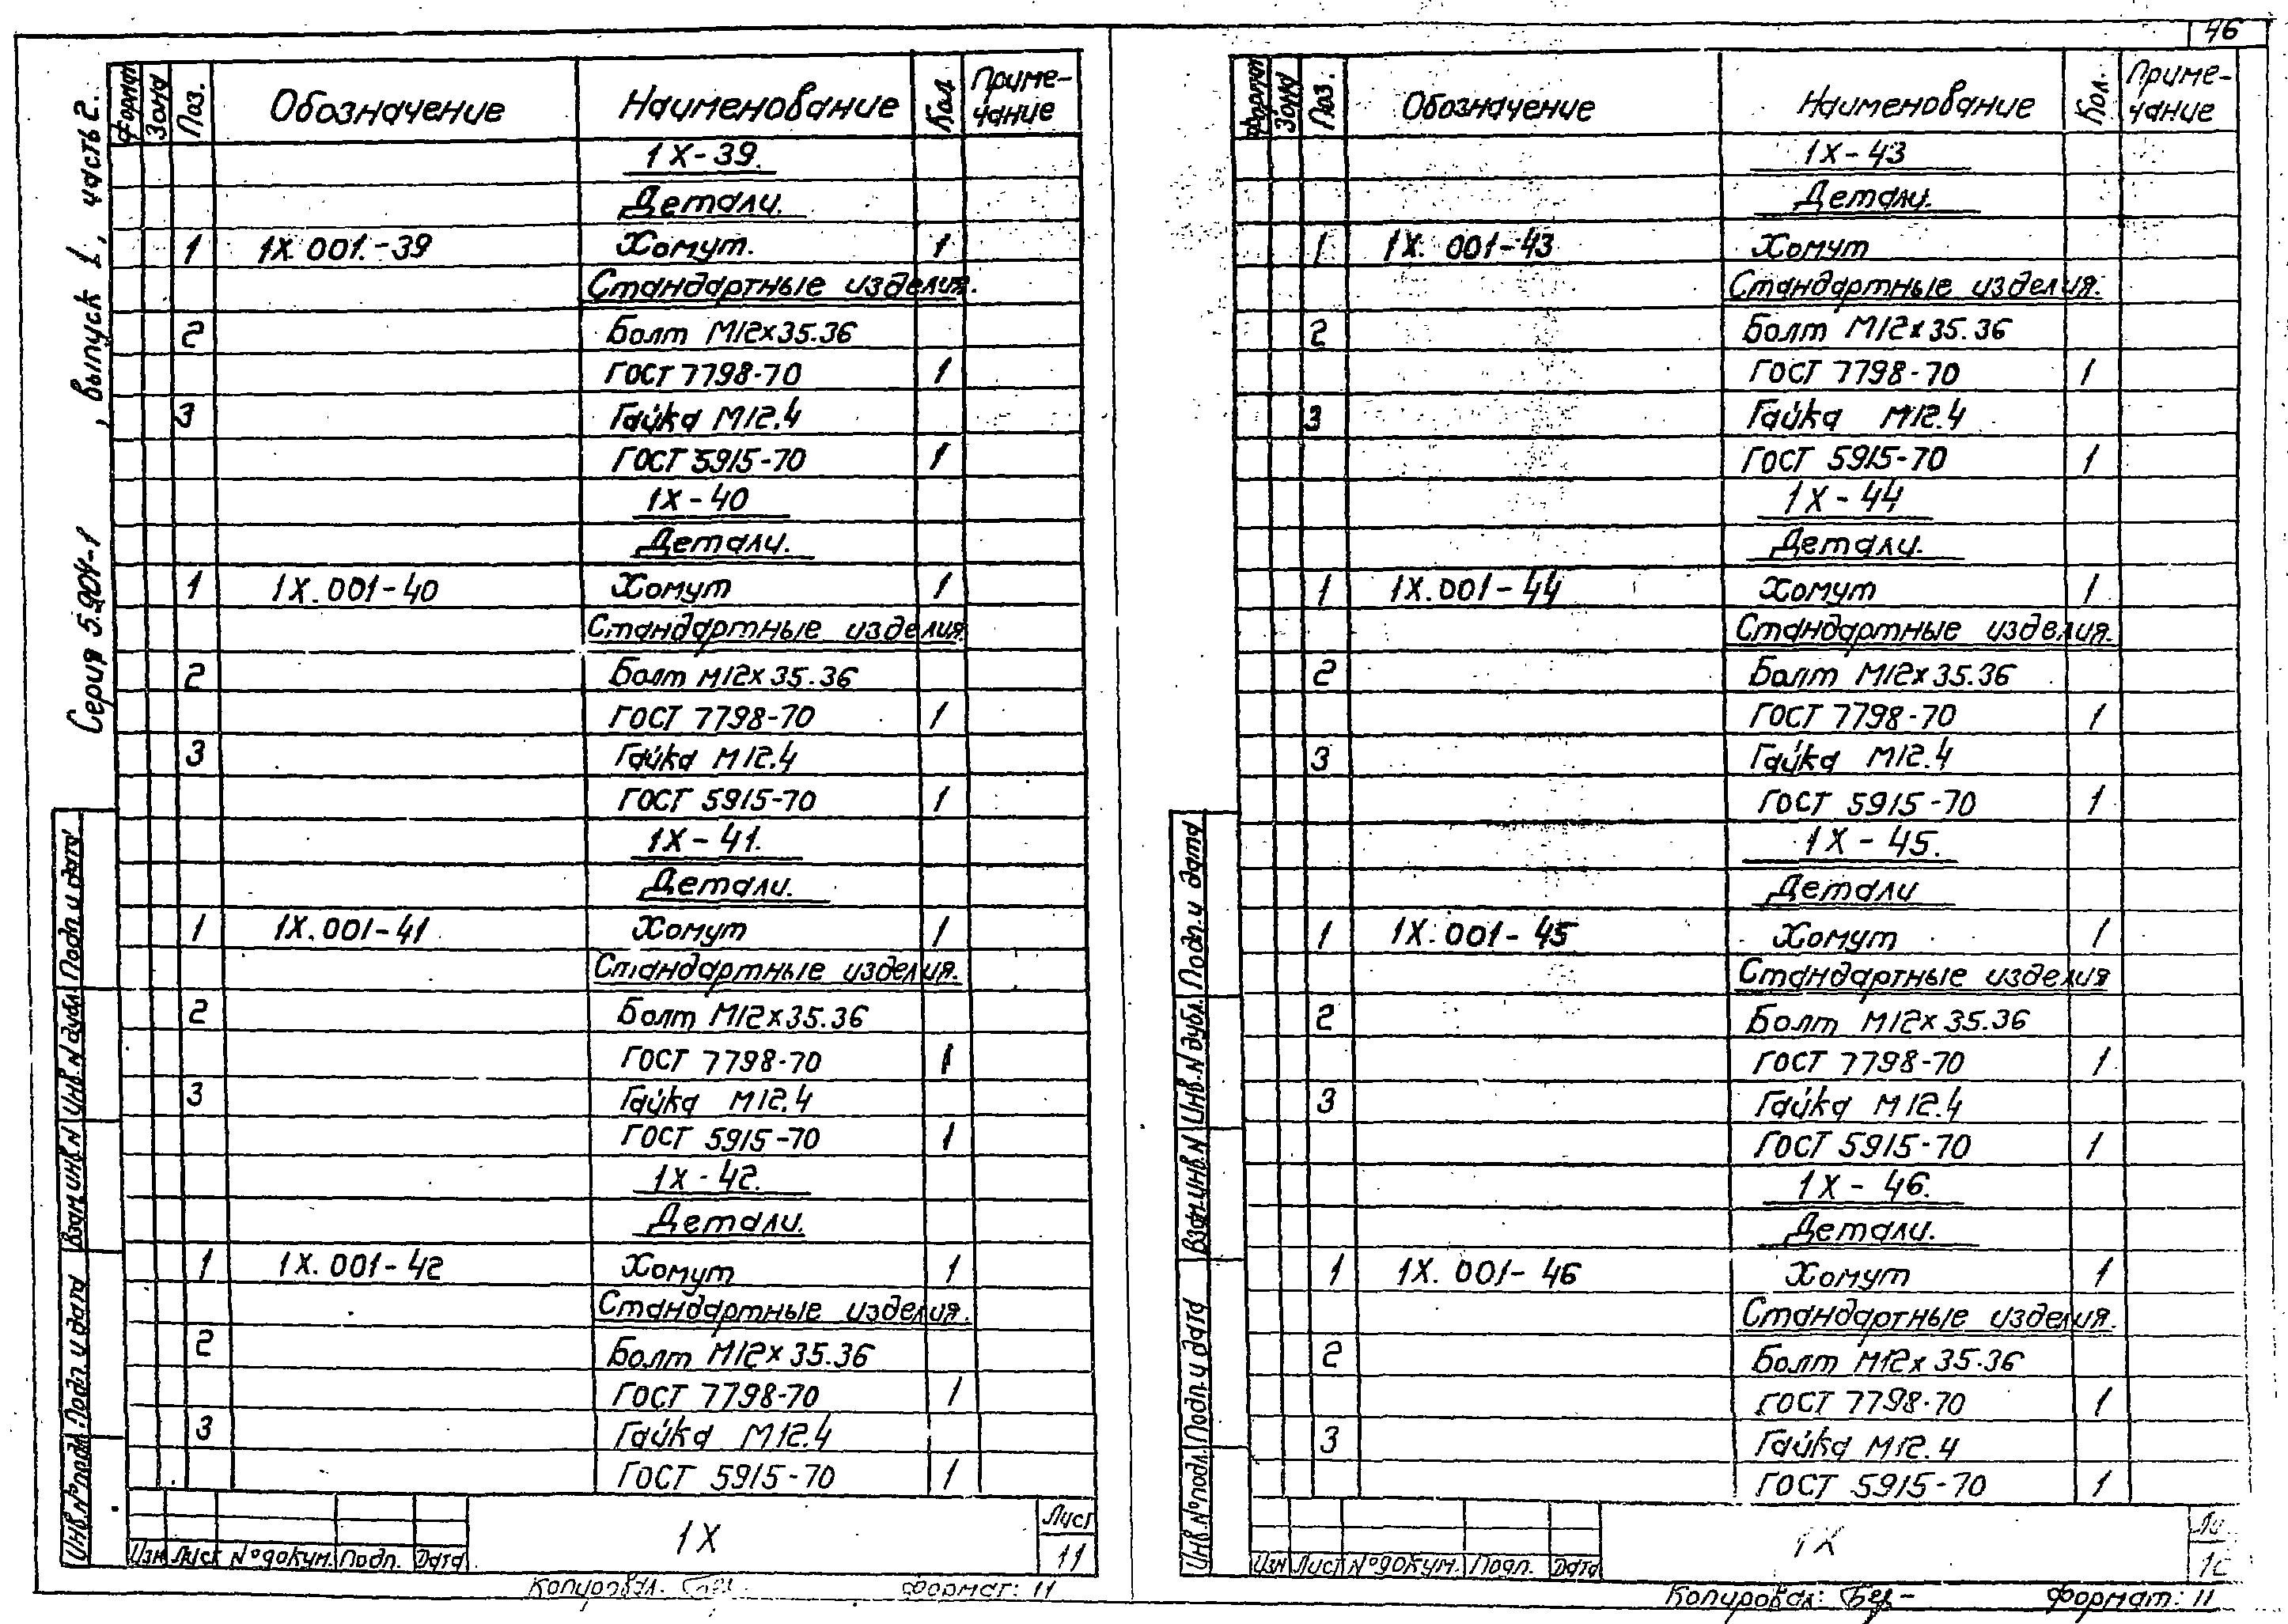 46
Серия 5.904-1, выпуск 1, часть 2.
Формат Зона Поз. Обозначение Наименование Кол. Приме-
чание
1Х-39.
Детали.
1 1Х.001.-39 Хомут. 1
Стандартные изделия.
2 Болт М12х35.36
ГОСТ 7798-70 1
3 Гайка М12.4
ГОСТ 5915-70 1
1Х-40
Детали.
1 1Х.001-40 Хомут 1
Стандартные изделия.
2 Болт М12х35.36
ГОСТ 7798-70 1
3 Гайка М12.4
ГОСТ 5915-70 1
1Х-41.
Детали.
1 1Х.001-41 Хомут 1
Стандартные изделия.
2 Болт М12х35.36
ГОСТ 7798-70 1
3 Гайка М12.4
ГОСТ 5915-70 1
1Х-42.
Детали.
1 1Х.001-42 Хомут 1
Стандартные изделия.
2 Болт М12х35.36
ГОСТ 7798-70 1
3 Гайка М12.4
ГОСТ 5915-70 1
Инв.№подл. Подп. и дата Взам.инв.N Инв.N дубл. Подп. и дата
Изм Лист №докум. Подп. Дата
1Х
Лист
11
Копировал. Формат: 11
Формат Зона Поз. Обозначение Наименование Кол. Приме-
чание
1Х-43
Детали.
1 1Х.001-43 Хомут
Стандартные изделия.
2 Болт М12х35.36
ГОСТ 7798-70 1
3 Гайка М12.4
ГОСТ 5915-70 1
1Х-44
Детали.
1 1Х.001-44 Хомут 1
Стандартные изделия.
2 Болт М12х35.36
ГОСТ 7798-70 1
3 Гайка М12.4
ГОСТ 5915-70 1
1Х-45.
Детали
1 1Х.001-45 Хомут 1
Стандартные изделия
2 Болт М12х35.36
ГОСТ 7798-70 1
3 Гайка М12.4
ГОСТ 5915-70 1
1Х-46.
Детали.
1 1Х.001-46 Хомут 1
Стандартные изделия.
2 Болт М12х35.36
ГОСТ 7798-70 1
3 Гайка М12.4
ГОСТ 5915-70 1
Инв.№подл. Подп. и дата Взам.инв.N Инв.N дубл. Подп. и дата
Изм Лист №докум. Подп. Дата
1Х
Копировал: Формат: 11